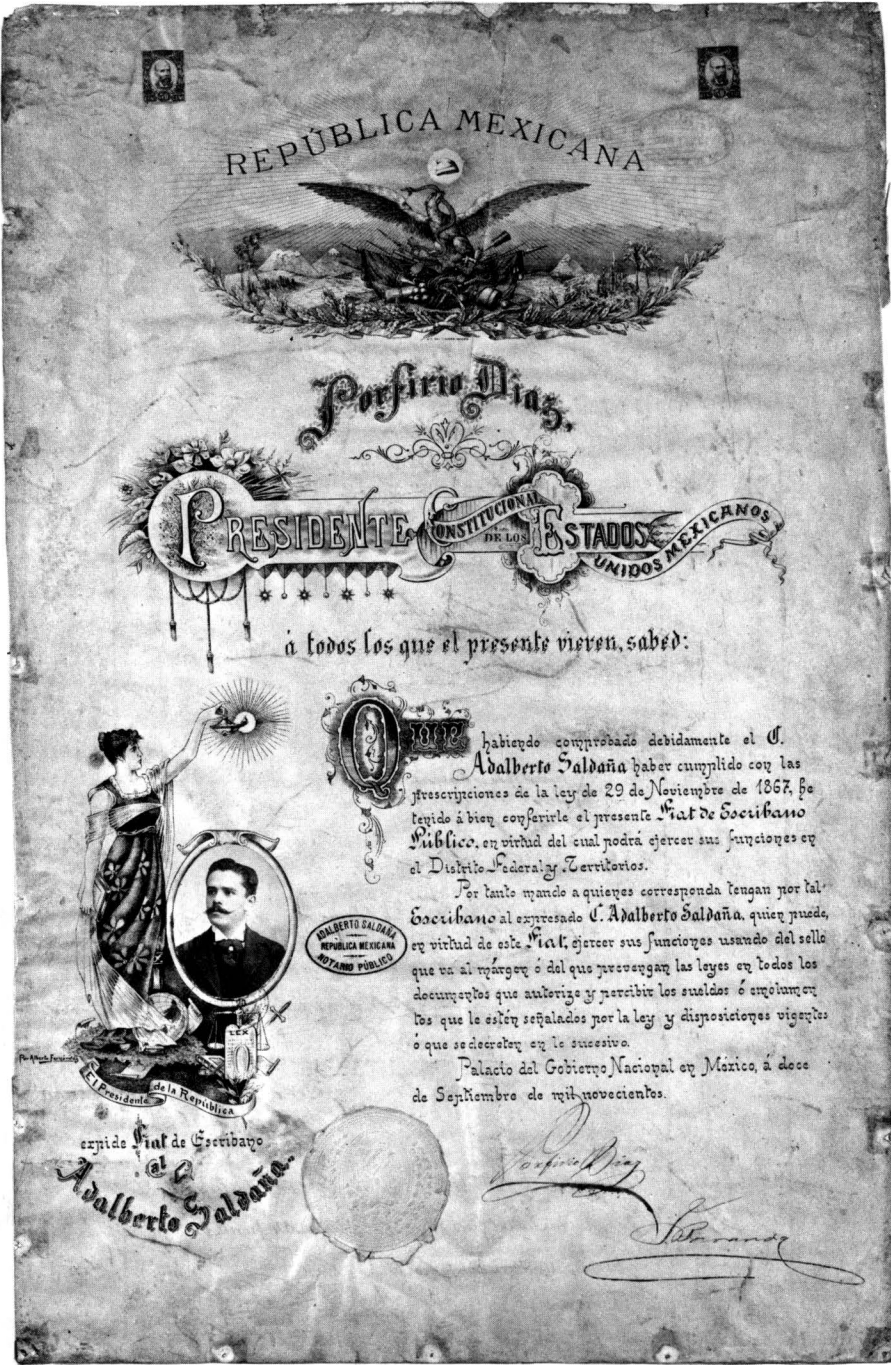 REPÚBLICA MEXICANA
Porfirio Diaz,
PRESIDENTE CONSTITUCIONAL DE LOS ESTADOS UNIDOS MEXICANOS
á todos los que el presente vieren, sabed:
QUE habiendo comprobado debidamente el C.
Adalberto Saldaña haber cumplido con las
prescripciones de la ley de 29 de Noviembre de 1867, he
tenido á bien conferirle el presente Fiat de Escribano
Público, en virtud del cual podrá ejercer sus funciones en
el Distrito Federal y Territorios.
Por tanto mando a quienes corresponda tengan por tal
Escribano al expresado C. Adalberto Saldaña, quien puede,
en virtud de este Fiat, ejercer sus funciones usando del sello
que va al márgen ó del que prevengan las leyes en todos los
documentos que autorize y percibir los sueldos ó emolumen
tos que le estén señalados por la ley y disposiciones vigentes
ó que se decreten en lo sucesivo.
Palacio del Gobierno Nacional en México, á doce
de Septiembre de mil novecientos.
ADALBERTO SALDAÑA
REPUBLICA MEXICANA
NOTARIO PÚBLICO
LEX
El Presidente de la República
expide Fiat de Escribano
al C.
Adalberto Saldaña.
Porfirio Diaz